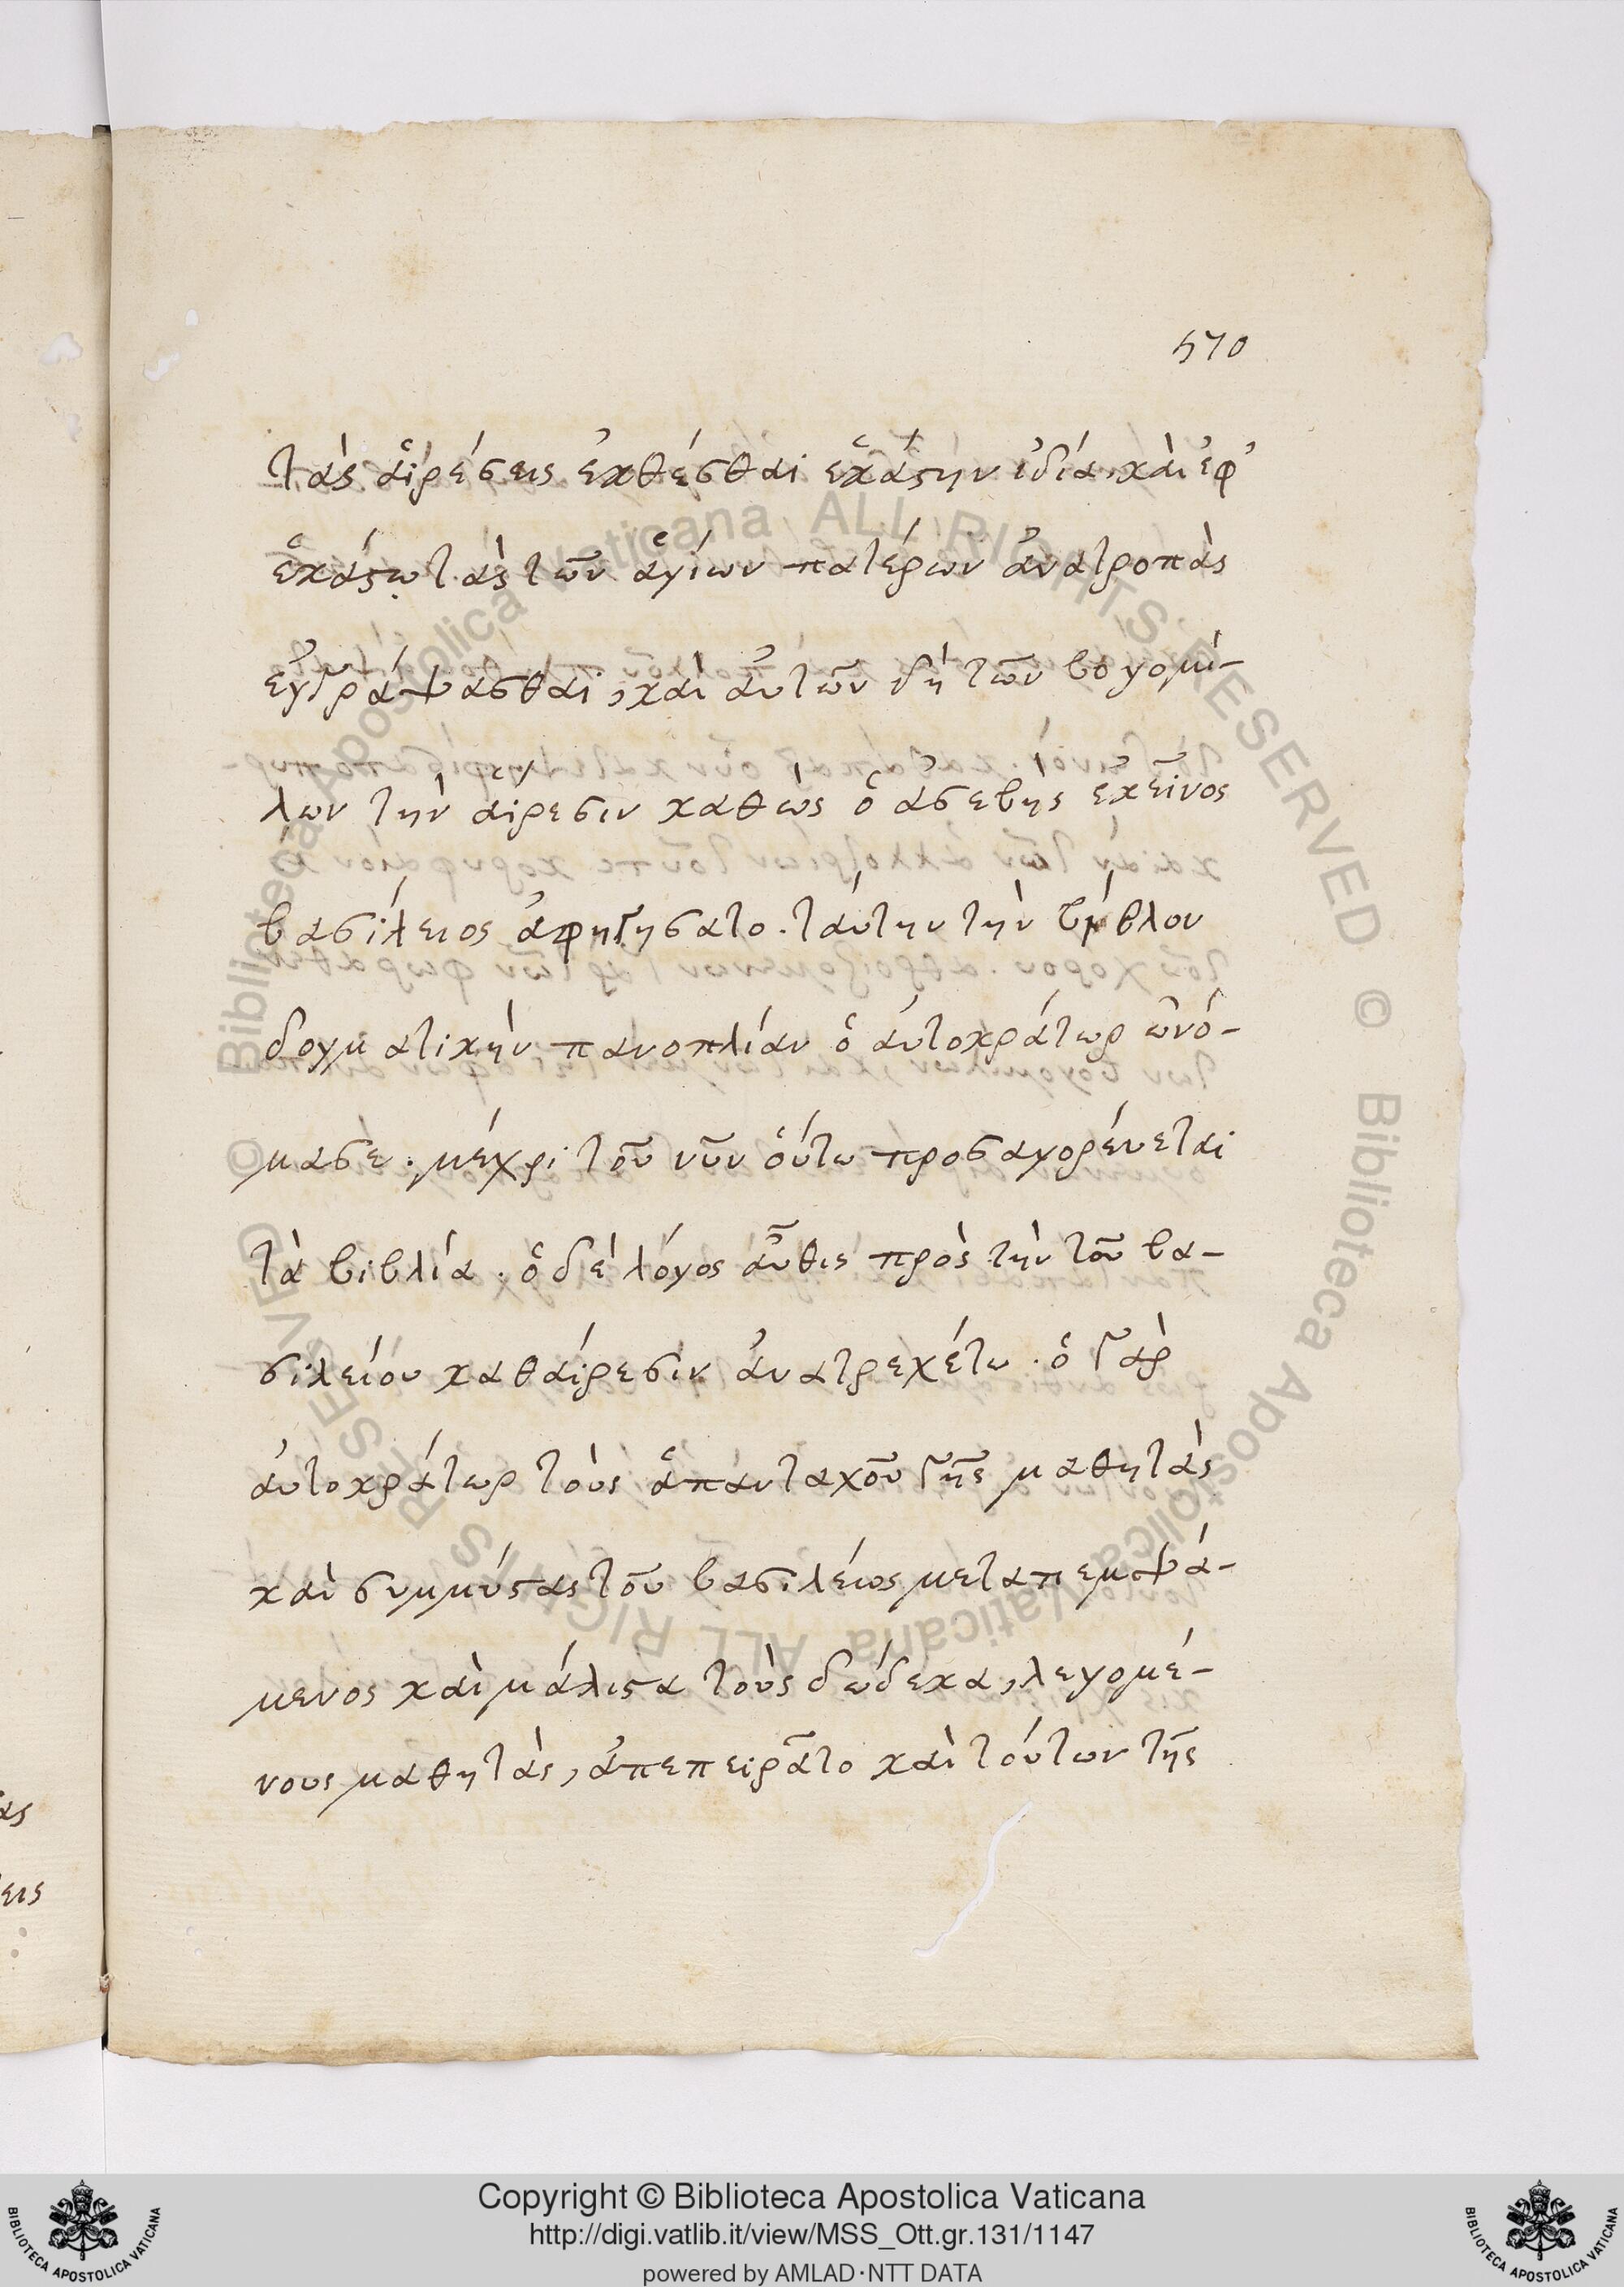 570
τὰς ἁιρέσεις ἐκθέσθαι ἑκάστην ἰδία, καὶ ἐφ᾽
ἑκάστω τὰς τῶν ἁγίων πατέρων ἀνατροπὰς
ἐγγράψασθαι, καὶ ἀυτῶν δὴ τῶν βογομί-
λων τὴν αἵρεσιν καθὼς ὁ ἀσεβὴς ἐκεῖνος
βασίλειος ἀφηγήσατο. ταύτην τὴν βίβλον
δογματικὴν πανοπλίαν ὁ ἀυτοκράτωρ ὠνό-
μασε. μέχρι τοῦ νῦν ὁύτω προσαγορέυεται
τὰ βιβλία. ὁ δὲ λόγος ἀῦθις πρὸς τὴν τοῦ βα-
σιλείου καθάιρεσιν ἀνατρεχέτω. ὁ γὰρ
ἀυτοκράτωρ τοὺς ἁπανταχοῦ γῆς μαθητὰς
καὶ συμμύστας τοῦ βασιλέιως μεταπεμψά-
μενος καὶ μάλιστα τοὺς δώδεκα, λεγομέ-
νους μαθητὰς, ἀπεπειρᾶτο καὶ τούτων τῆς
ας
εις
Copyright © Biblioteca Apostolica Vaticana
http://digi.vatlib.it/view/MSS_Ott.gr.131/1147
powered by AMLAD·NTT DATA